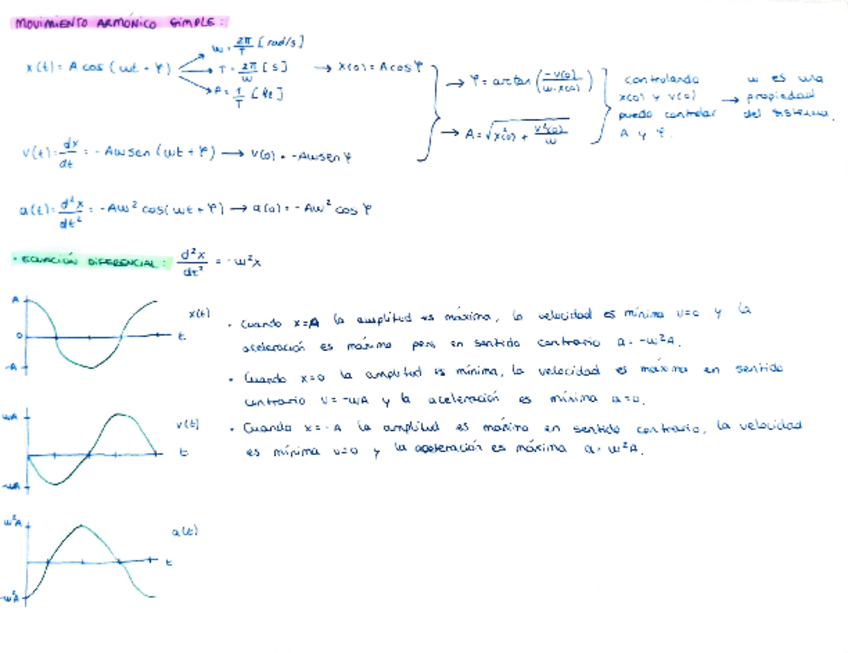 MOVIMIENTO ARMÓNICO SIMPLE:
x(t) = A cos(ωt + φ)
ω = 2π/T [rad/s]
T = 2π/ω [s]
A = 1/T [Hz]
→ x(0) = A cos φ
v(t) = dx/dt = -Aω sen(ωt + φ) → v(0) = -Aω sen φ
→ φ = arctan(-v(0)/ω·x(0))
→ A = √x²(0) + v²(0)/ω
controlando
x(0) y v(0)
puedo controlar
A y φ.
→ ω es una
propiedad
del sistema.
a(t) = d²x/dt² = -Aω² cos(ωt + φ) → a(0) = -Aω² cos φ
· ECUACIÓN DIFERENCIAL: d²x/dt² = -ω²x
A
0
-A
x(t)
t
· Cuando x=A la amplitud es máxima, la velocidad es mínima v=0 y la
aceleración es máxima pero en sentido contrario a = -ω²A.
· Cuando x=0 la amplitud es mínima, la velocidad es máxima en sentido
contrario v = -ωA y la aceleración es mínima a=0.
· Cuando x=-A la amplitud es máximo en sentido contrario, la velocidad
es mínima v=0 y la aceleración es máxima a = ω²A.
ωA
-ωA
v(t)
t
ω²A
-ω²A
a(t)
t